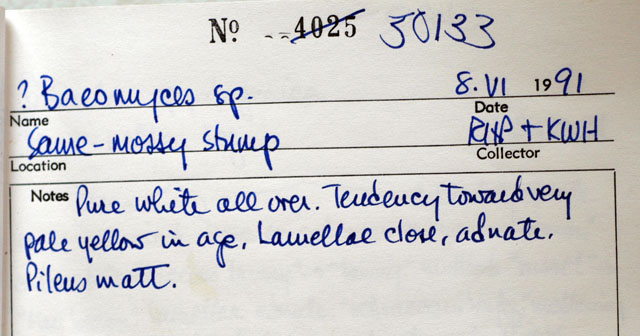 Nº 4025 50133
? Baeomyces sp. 8. VI 1991
Name Date
Same - mossy stump RHP + KWH
Location Collector
Notes Pure white all over. Tendency toward very
pale yellow in age. Lamellae close, adnate.
Pileus matt.